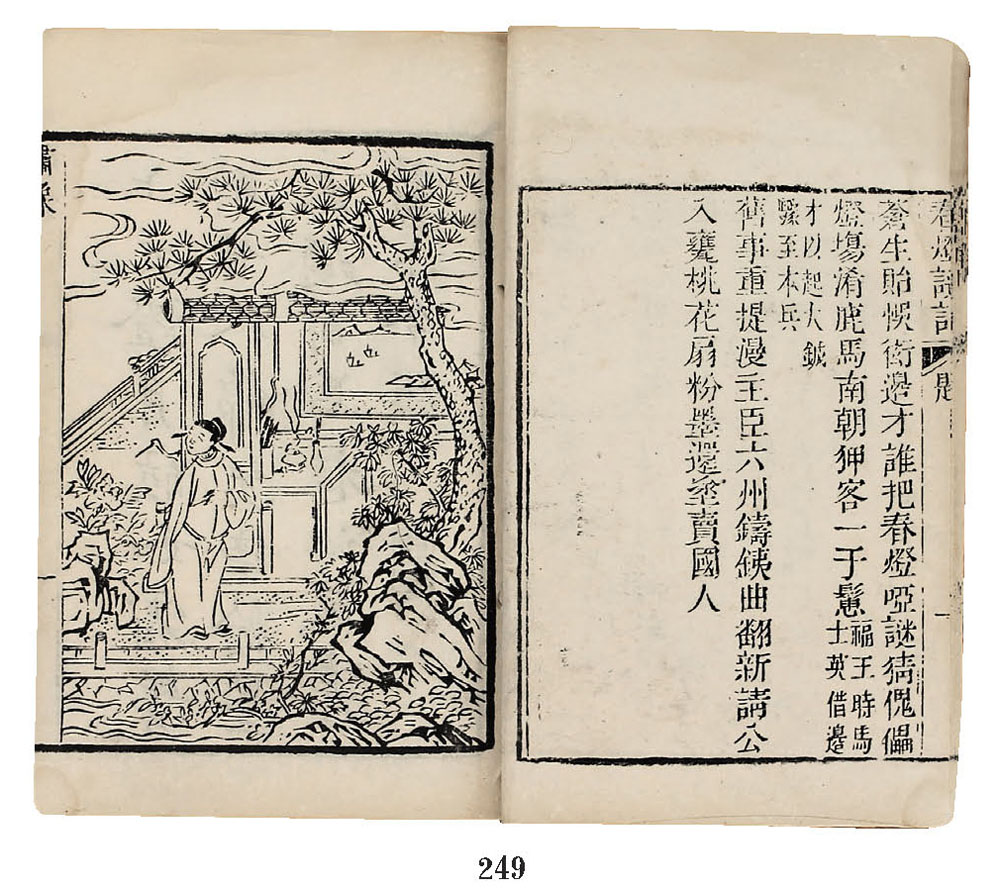 春燈謎記 題 一
蒼生貽悞衒邊才誰把春燈啞謎猜傀儡
燈塲淆鹿馬南朝狎客一于䰄福王時馬
士英借邊
才以起大鋮
驟至本兵
舊事重提漫王臣六州鑄銕曲翻新請公
入甕桃花扇粉墨還登賣國人
繡像 一
249